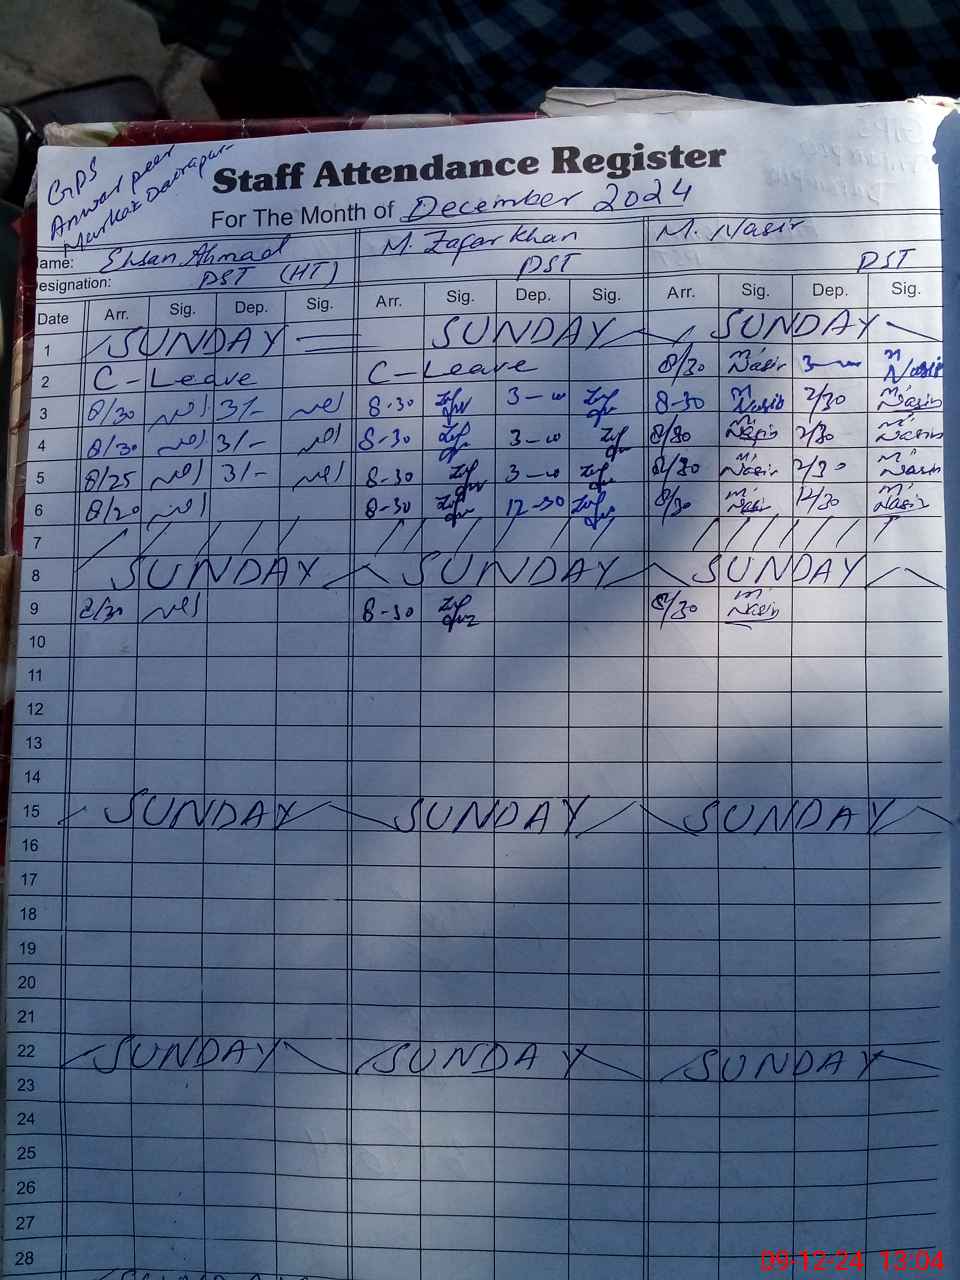 GPS
Anwar peer
Markaz Daorapur
Staff Attendance Register
For The Month of December 2024
ame: Ehsan Ahmad M. Zafar Khan M. Nasir
esignation: PST (HT) PST PST
Date Arr. Sig. Dep. Sig. Arr. Sig. Dep. Sig. Arr. Sig. Dep. Sig.
1 SUNDAY SUNDAY SUNDAY
2 C-Leave C-Leave 8/30 M. Nasir 3-00 M. Nasir
3 8/30 3/- 8-30 3-00 8-30 M. Nasir 2/30 M. Nasir
4 8/30 3/- 8-30 3-00 8/30 M. Nasir 2/30 M. Nasir
5 8/25 3/- 8-30 3-00 8/30 M. Nasir 2/30 M. Nasir
6 8/20 8-30 12-30 8/30 M. Nasir 12/30 M. Nasir
7
8 SUNDAY SUNDAY SUNDAY
9 8/30 8-30 8/30 M. Nasir
10
11
12
13
14
15 SUNDAY SUNDAY SUNDAY
16
17
18
19
20
21
22 SUNDAY SUNDAY SUNDAY
23
24
25
26
27
28
09-12-24 13:04